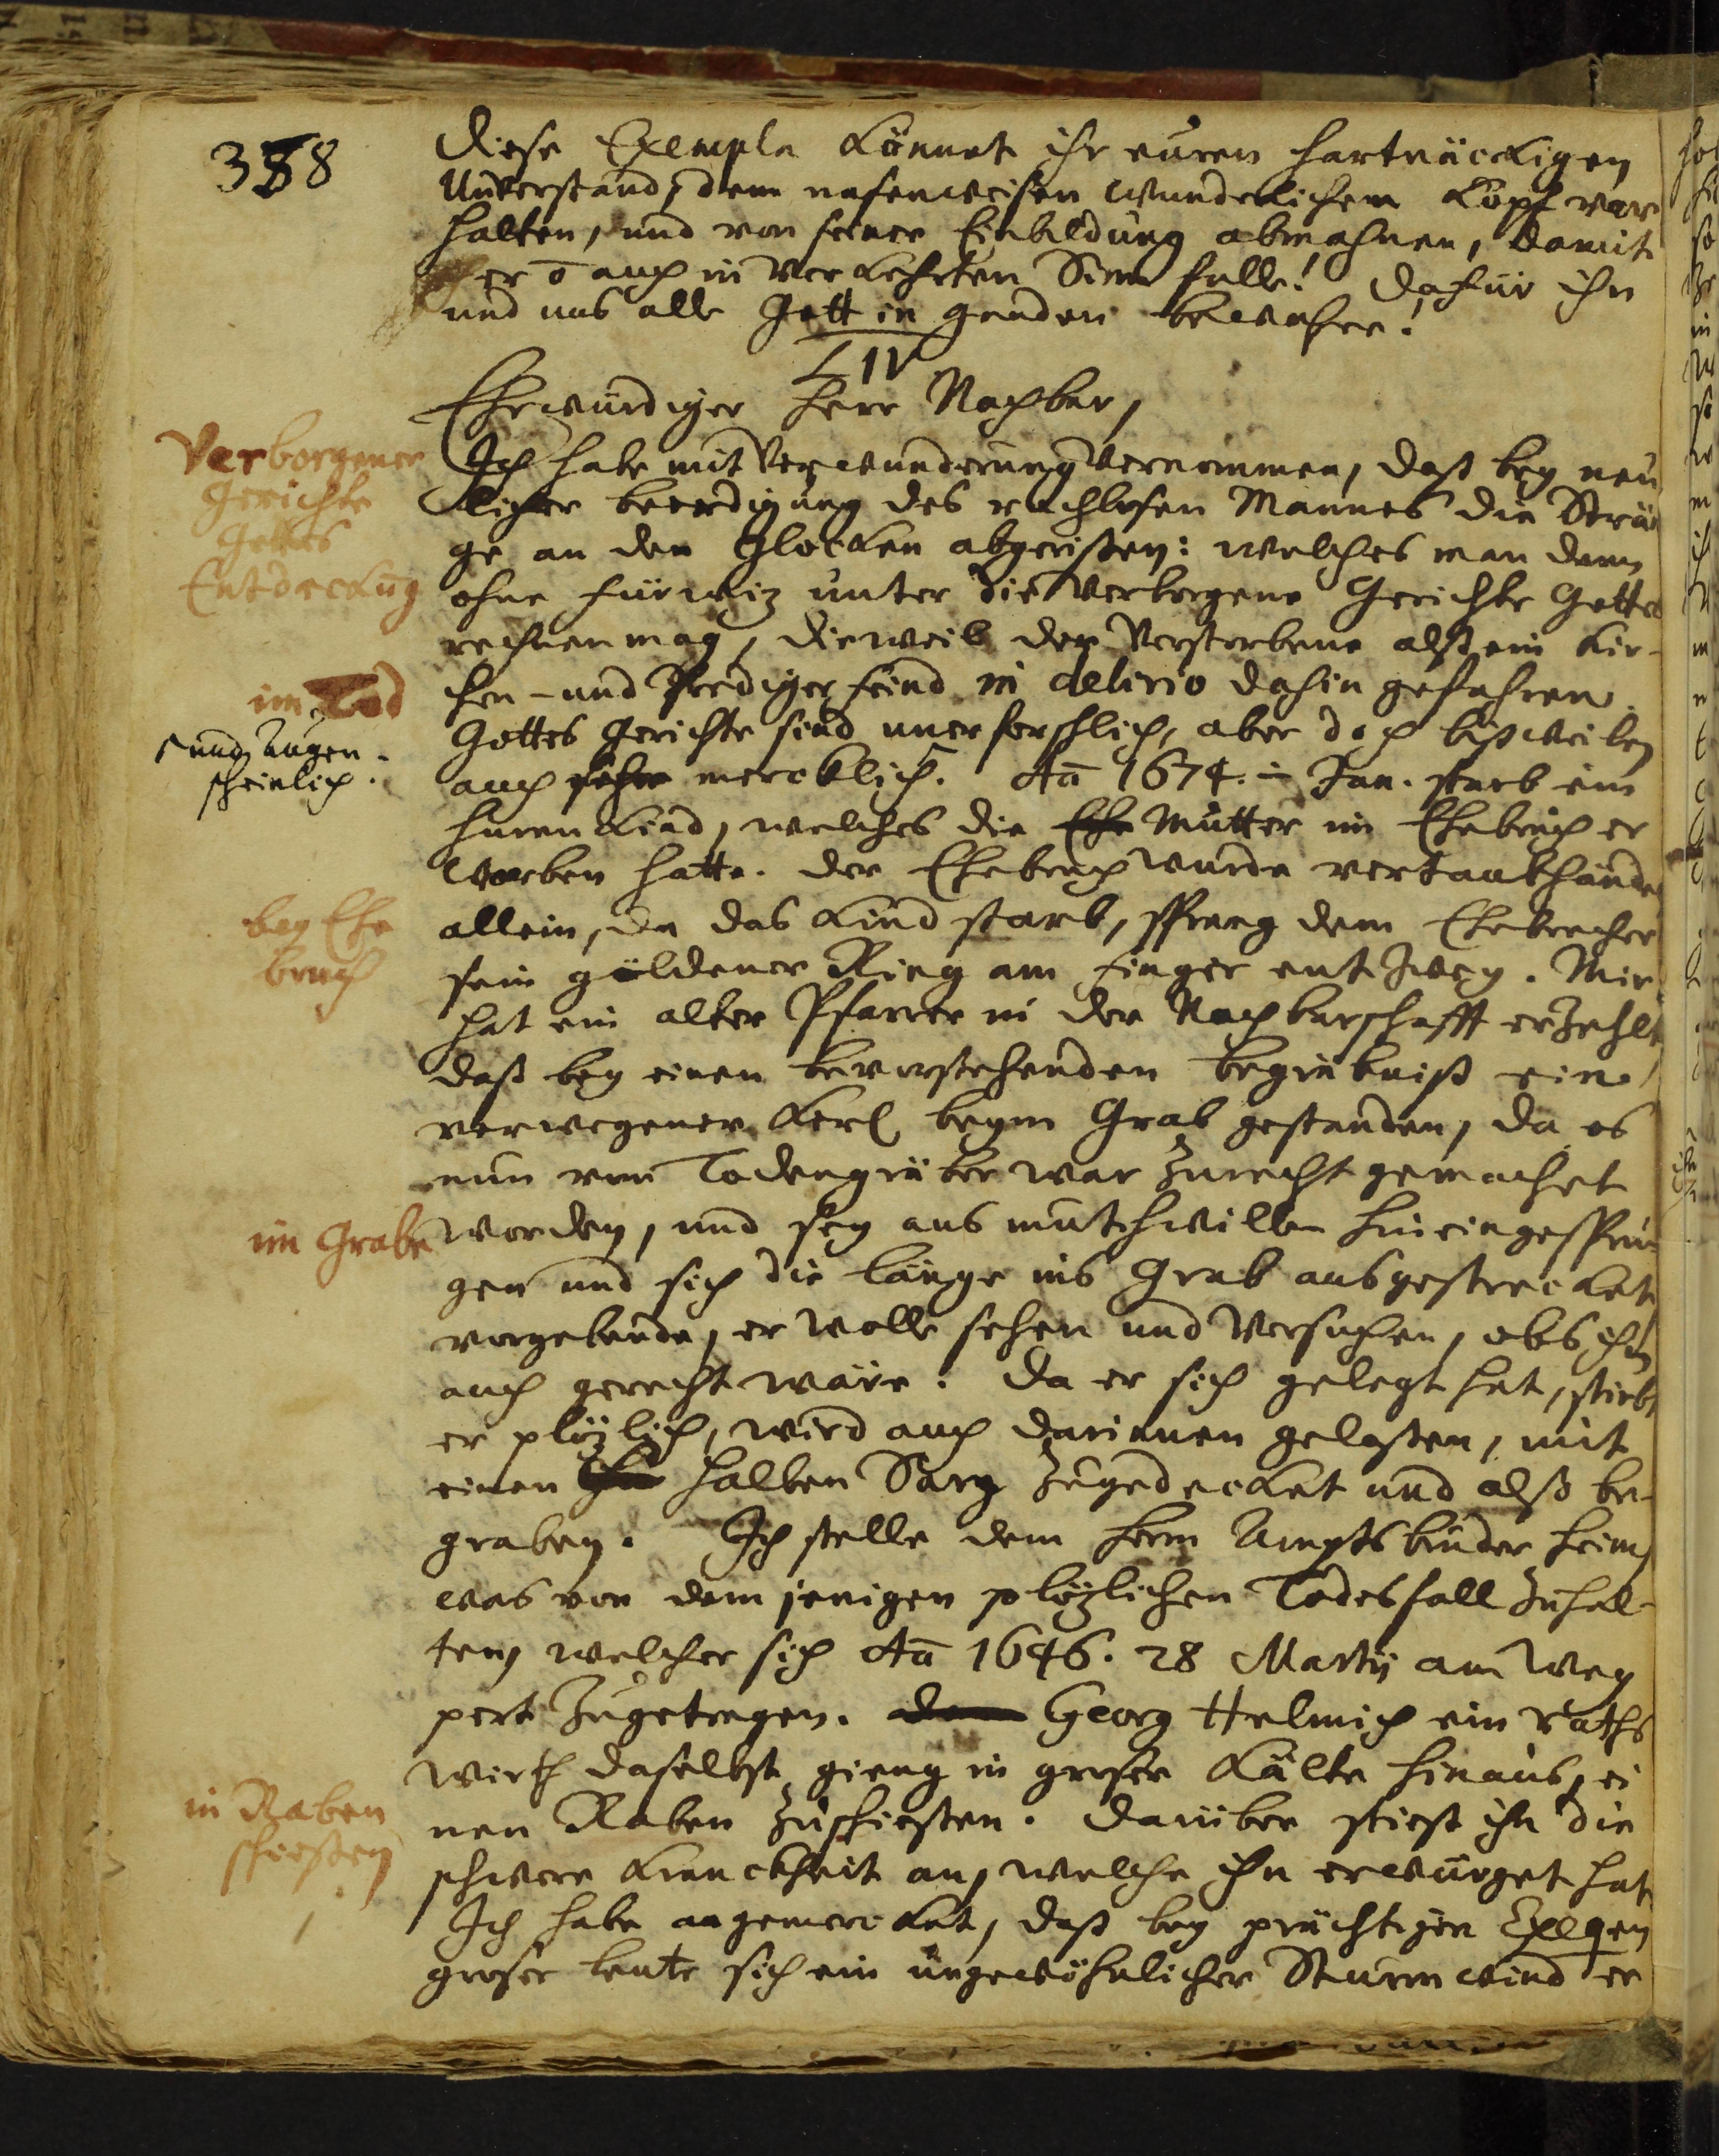 388
Diese Exempla könnet ihr euren hartnäckigen
Unverstand, dem nasenweisen wunderlichem Kopf vor
halten, und von seiner Einbildung abmahnen, damit
er ō auch in verkehrten Sinn falle! Dafür ihn
und uns alle Gott in gnaden bewahre!
LIV
Ehrwürdiger Herr Nachbar,
Verborgener
Gerichte
Gottes
Entdeckūg
Ich habe mit Verwunderung vernommen, daß bey neu
licher beerdigung des ruchlosen Mannes die Strän
ge an den Glocken abgerißen: welches man denn
ohne fürwiz unter die verborgene Gerichte Gottes
rechnen mag, dieweil der Verstorbene alß ein Kir-
im Tod
chen- und Prediger feind in delirio dahin gefahren.
und augen-
scheinlich.
Gottes Gerichte sind unerforschlich, aber doch bißweilen
auch sehr mercklich. Aō 1674. in Jan. starb ein
Hurenkind, welches die Ehe Mutter im Ehebruch er
worben hatte. Der Ehebruch wurde
bey Ehe
bruch
allein, da das Kind starb, sprang dem Ehebrecher
sein güldener Ring am finger entzwey. Mir
hat ein alter Pfarrer in der Nachbarschafft erzehlt
daß bey einen bevorstehenden begräbniß ein
verwegener Kerl beym Grab gestanden, da es
nun vom Todengräber war zurecht gemachet
im Grabe
worden, und sey aus muthwillen hineingesprun
gen und sich die länge ins Grab ausgestrecket
vorgebende, er wolle sehen und versuchen, obs ihm
auch gerecht wäre. Da er sich gelegt hat, stirbt
er plözlich, wird auch darinnen gelaßen, mit
einen halben Sarg zugedecket und alß be-
graben. Ich stelle dem Herrn Ampts bruder heim,
was von demjenigen plözlichen Todesfall zuhal-
ten, welcher sich Aō 1646. 28 Martij am Weg
zugetragen. Georg Helmich ein Raths
wirth daselbst gieng in großer Kälte hinaus, ei
in Raben
schießen
nen Raben zuschießen. Darüber stieß ihn die
schwere Kranckheit an, welche ihn erwürget hat.
Ich habe angemercket, daß bey prächtigen Exeqen
großer leute sich ein ungewöhnlicher Sturmwind er